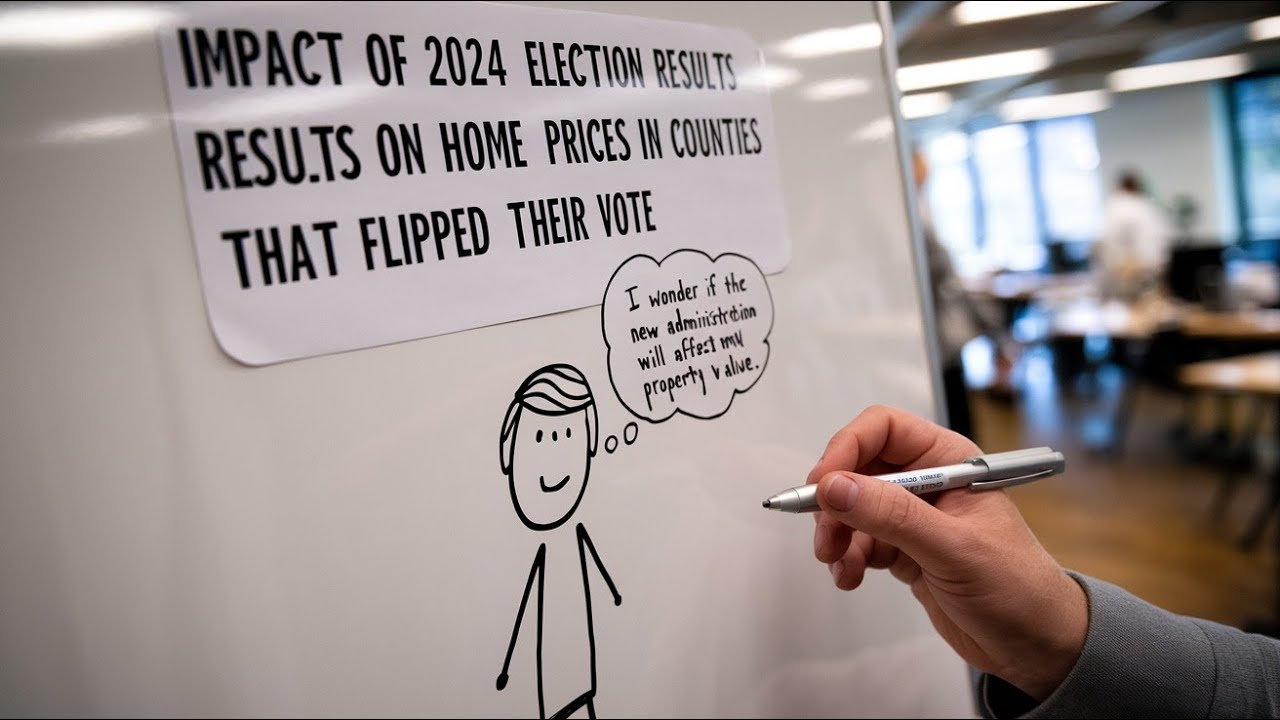 IMPACT OF 2024 ELECTION RESULTS
RESU.TS ON HOME PRICES IN COUNTIES
THAT FLIPPED THEIR VOTE
I wonder if the
new
will
property